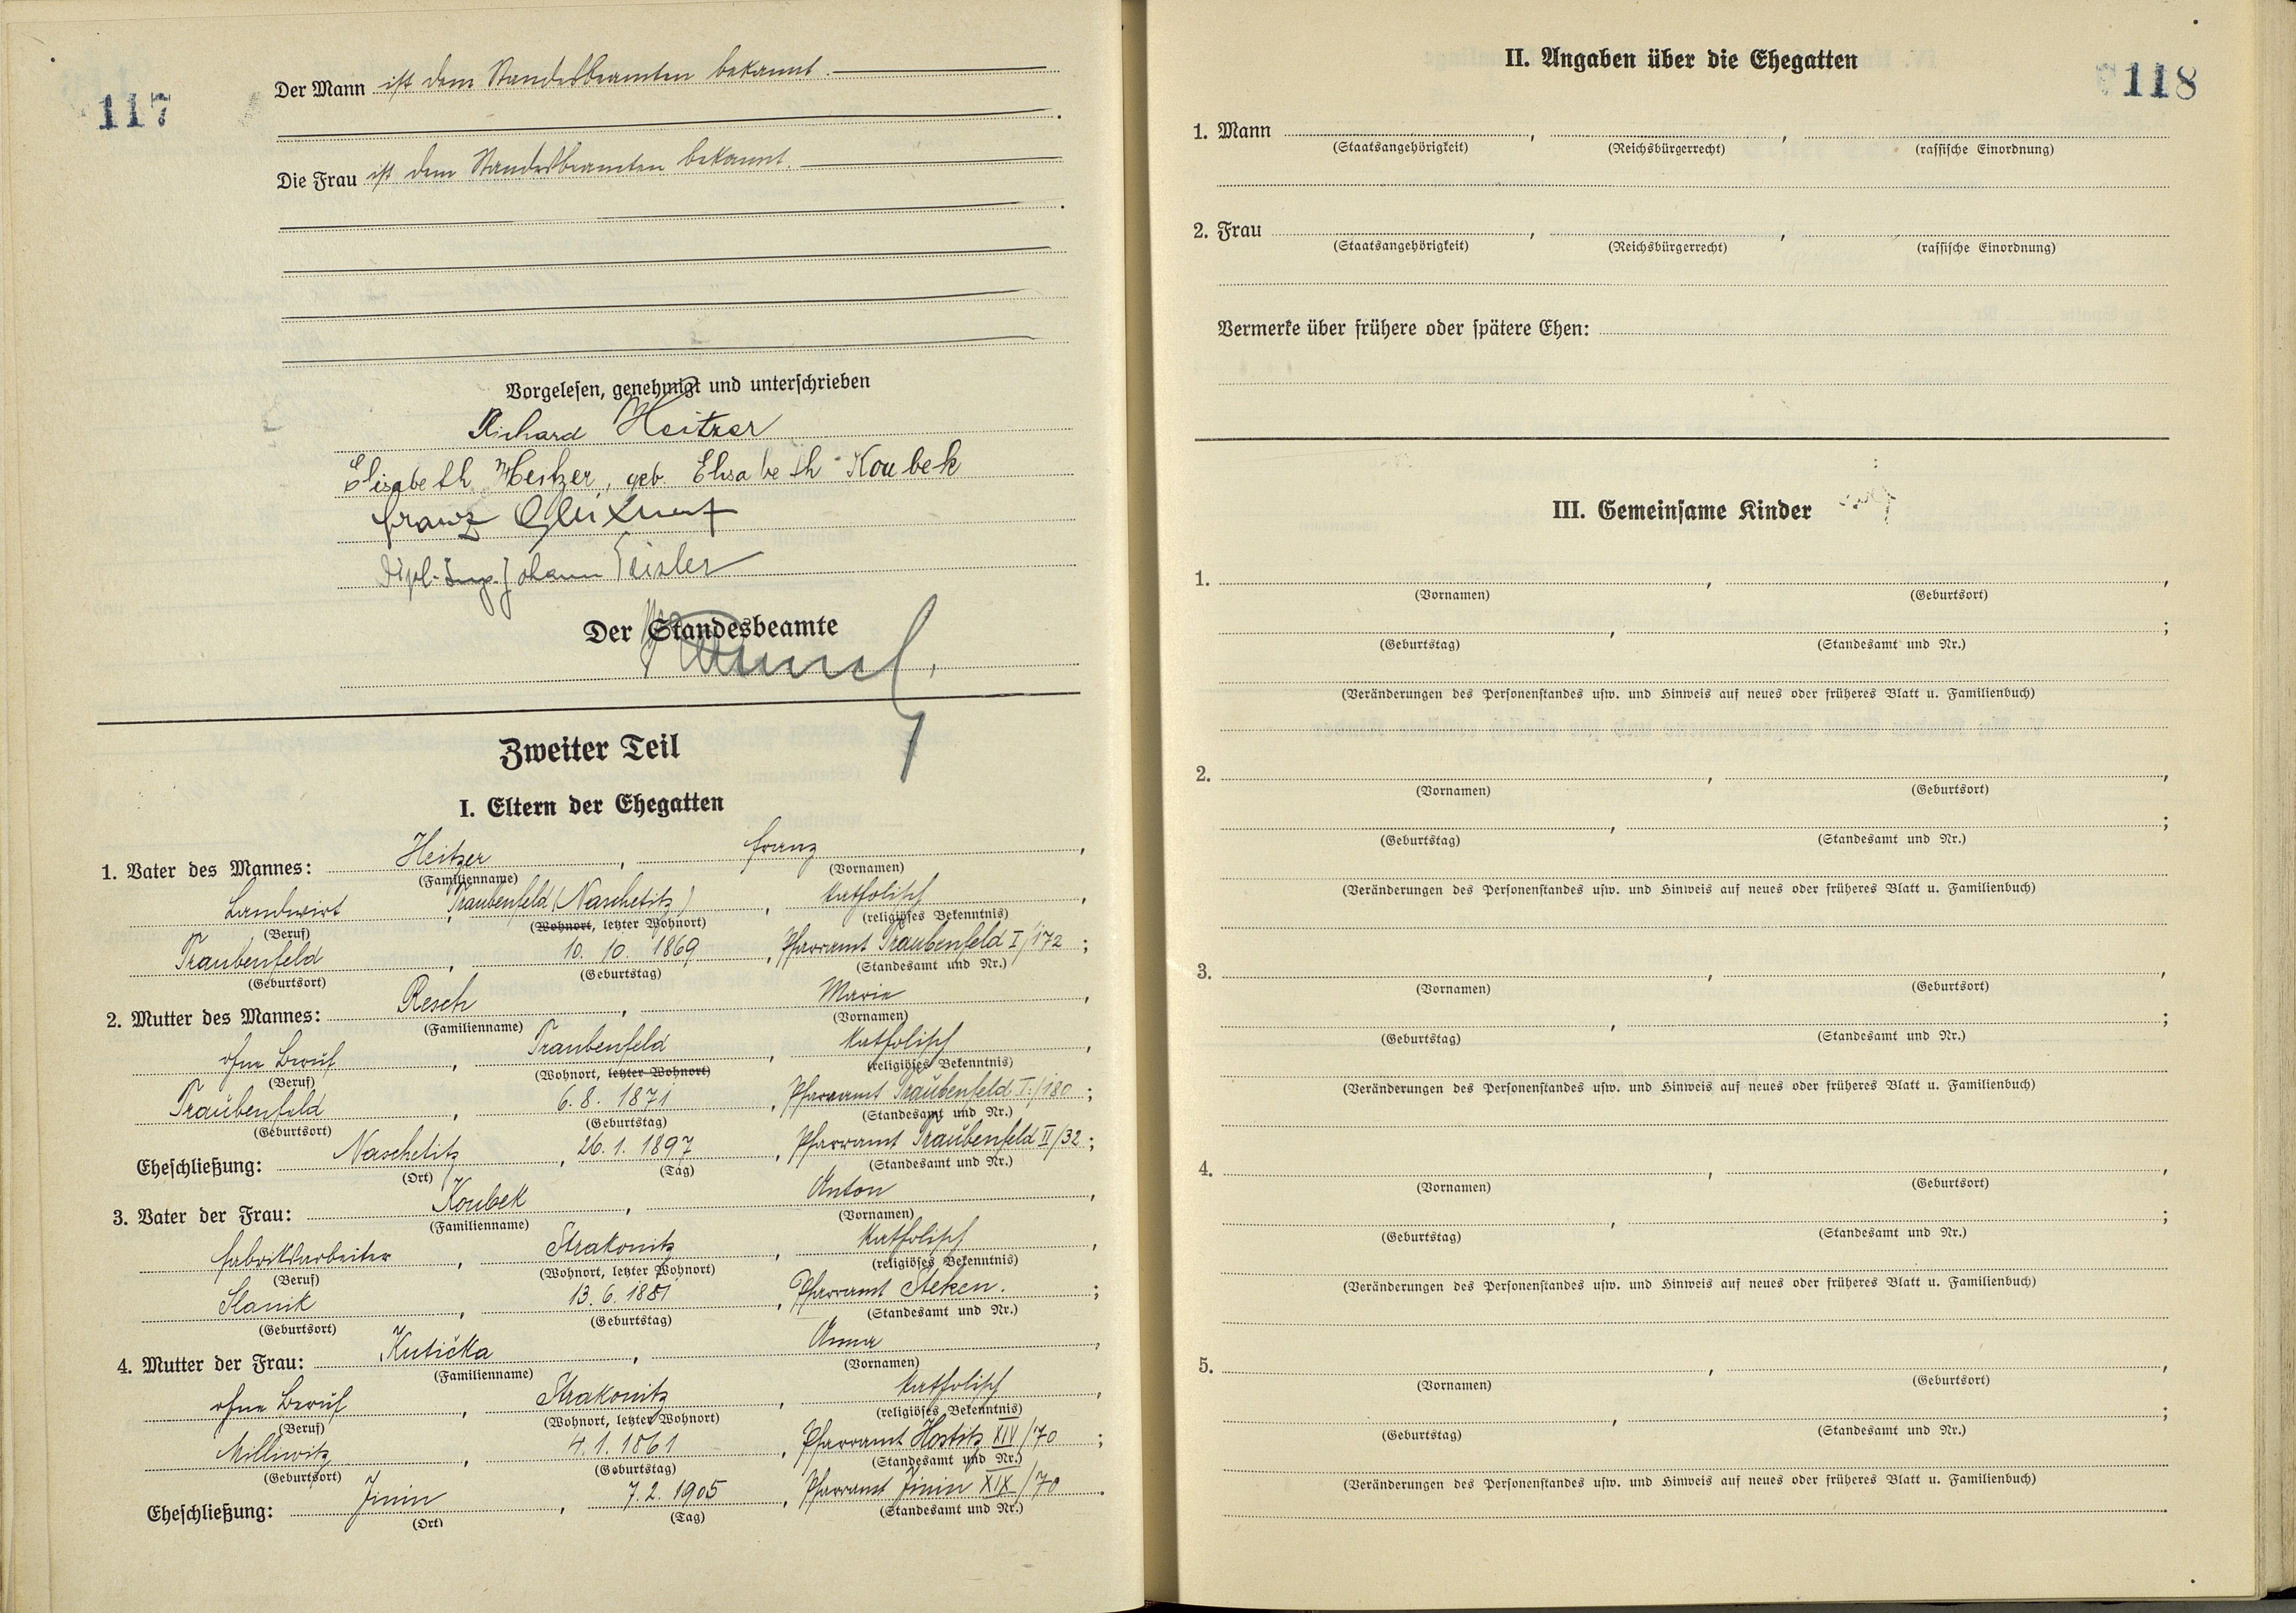 117
Der Mann ist dem Standesbeamten bekannt.
Die Frau ist dem Standesbeamten bekannt.
Vorgelesen, genehmigt und unterschrieben
Richard Heitzer
Elisabeth Heitzer, geb. Elisabeth Koubek
Franz
Dipl.-Ing. Johann
Der Standesbeamte
Zweiter Teil
I. Eltern der Ehegatten
1. Vater des Mannes: Heitzer, Franz,
(Familienname) (Vornamen)
Landwirt, Traubenfeld (Naschetitz), katholisch,
(Beruf) (Wohnort, letzter Wohnort) (religiöses Bekenntnis)
Traubenfeld, 10. 10. 1869, Pfarramt Traubenfeld I/172;
(Geburtsort) (Geburtstag) (Standesamt und Nr.)
2. Mutter des Mannes: Resch, Marie,
(Familienname) (Vornamen)
ohne Beruf, Traubenfeld, katholisch,
(Beruf) (Wohnort, letzter Wohnort) (religiöses Bekenntnis)
Traubenfeld, 6. 8. 1871, Pfarramt Traubenfeld I./180;
(Geburtsort) (Geburtstag) (Standesamt und Nr.)
Eheschließung: Naschetitz, 26. 1. 1897, Pfarramt Traubenfeld II/32;
(Ort) (Tag) (Standesamt und Nr.)
3. Vater der Frau: Koubek, Anton,
(Familienname) (Vornamen)
Fabriksarbeiter, Strakonitz, katholisch,
(Beruf) (Wohnort, letzter Wohnort) (religiöses Bekenntnis)
Slanik, 13. 6. 1881, Pfarramt Steken.;
(Geburtsort) (Geburtstag) (Standesamt und Nr.)
4. Mutter der Frau: Kutička, Anna,
(Familienname) (Vornamen)
ohne Beruf, Strakonitz, katholisch,
(Beruf) (Wohnort, letzter Wohnort) (religiöses Bekenntnis)
Milliwitz, 4. 1. 1861, Pfarramt Hostitz XIV/70;
(Geburtsort) (Geburtstag) (Standesamt und Nr.)
Eheschließung: Jinin, 7. 2. 1905, Pfarramt Jinin XIX/70.
(Ort) (Tag) (Standesamt und Nr.)
118
II. Angaben über die Ehegatten
1. Mann , ,
(Staatsangehörigkeit) (Reichsbürgerrecht) (rassische Einordnung)
2. Frau , ,
(Staatsangehörigkeit) (Reichsbürgerrecht) (rassische Einordnung)
Vermerke über frühere oder spätere Ehen:
III. Gemeinsame Kinder
1. , ,
(Vornamen) (Geburtsort)
, ;
(Geburtstag) (Standesamt und Nr.)
(Veränderungen des Personenstandes usw. und Hinweis auf neues oder früheres Blatt u. Familienbuch)
2. , ,
(Vornamen) (Geburtsort)
, ;
(Geburtstag) (Standesamt und Nr.)
(Veränderungen des Personenstandes usw. und Hinweis auf neues oder früheres Blatt u. Familienbuch)
3. , ,
(Vornamen) (Geburtsort)
, ;
(Geburtstag) (Standesamt und Nr.)
(Veränderungen des Personenstandes usw. und Hinweis auf neues oder früheres Blatt u. Familienbuch)
4. , ,
(Vornamen) (Geburtsort)
, ;
(Geburtstag) (Standesamt und Nr.)
(Veränderungen des Personenstandes usw. und Hinweis auf neues oder früheres Blatt u. Familienbuch)
5. , ,
(Vornamen) (Geburtsort)
, ;
(Geburtstag) (Standesamt und Nr.)
(Veränderungen des Personenstandes usw. und Hinweis auf neues oder früheres Blatt u. Familienbuch)